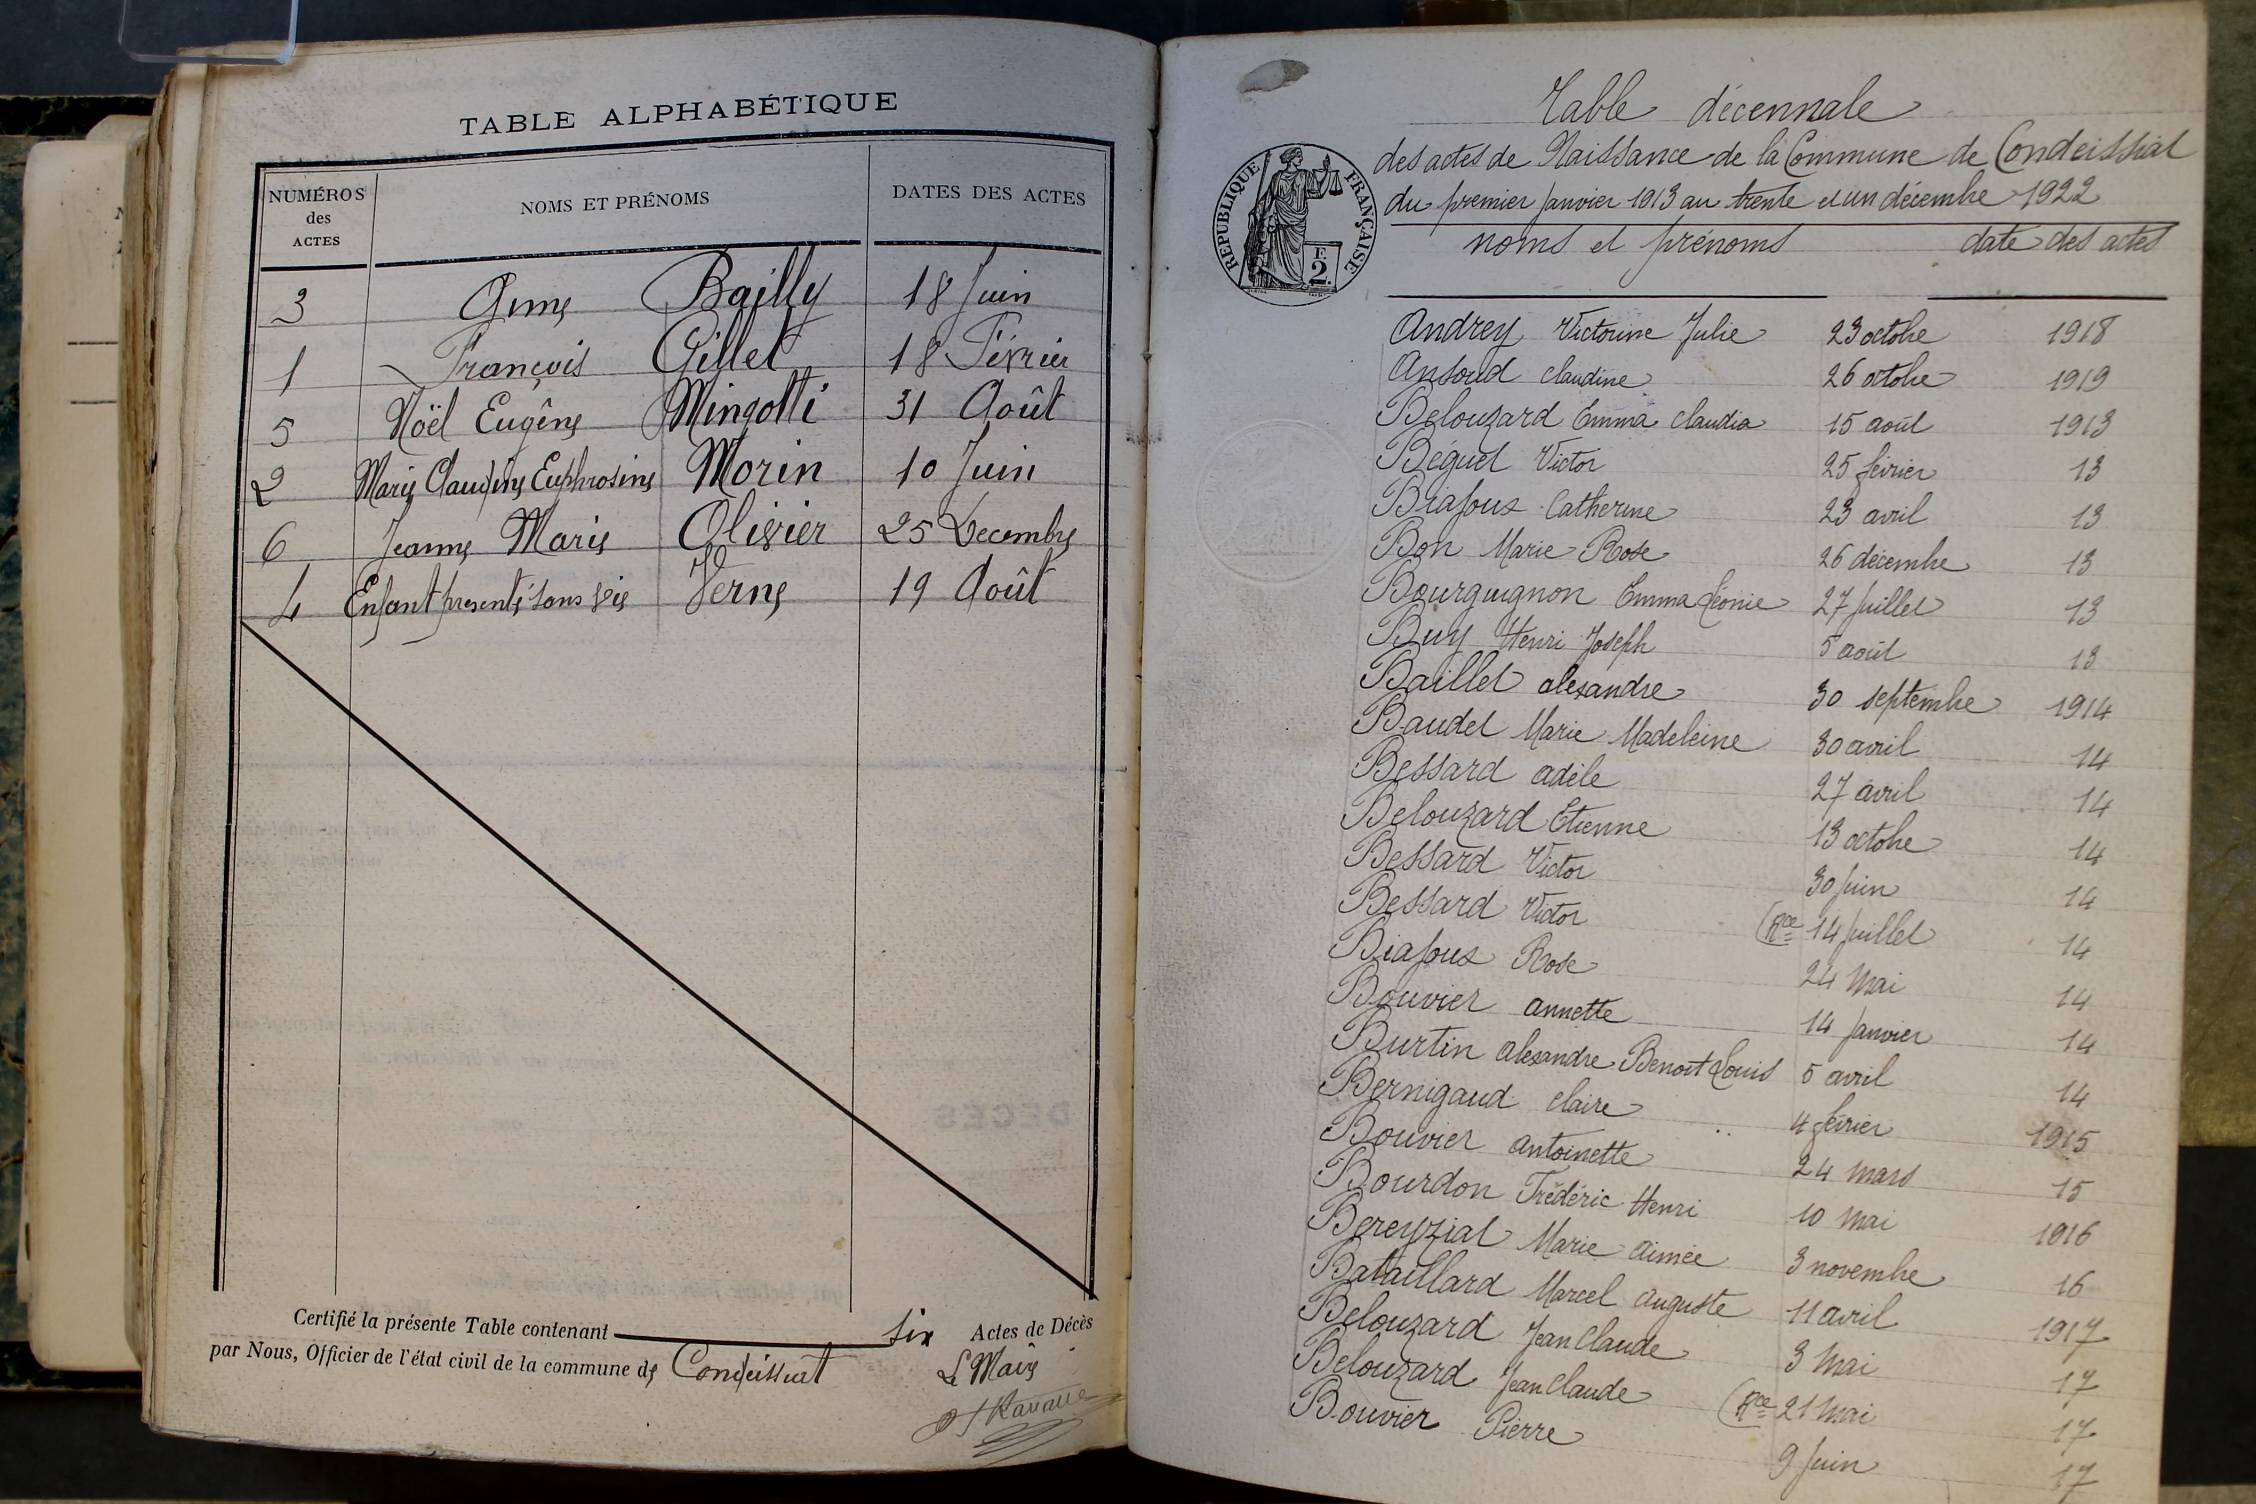 TABLE ALPHABÉTIQUE
NUMÉROS des ACTES NOMS ET PRÉNOMS DATES DES ACTES
3 Anne Bailly 18 Juin
1 François Gillet 18 Février
5 Noël Eugène Mingotti 31 Août
2 Marie Claudine Euphrosine Morin 10 Juin
6 Jeanne Marie Olivier 25 Decembre
4 Enfant presenté sans vie Verne 19 Août
Certifié la présente Table contenant six Actes de Décès
par Nous, Officier de l'état civil de la commune de Condeissiat Le Maire
Table décennale
des actes de Naissance de la Commune de Condeissiat
du premier janvier 1913 au trente et un décembre 1922
RÉPUBLIQUE FRANÇAISE
F. 2.
noms et prénoms date des actes
Andrey Victorine Julie 23 octobre 1918
Ansoud claudine 26 octobre 1919
Belouzard Emma claudia 15 août 1913
Béguet Victor 25 février 13
Biajoux Catherine 23 avril 13
Bon Marie Rose 26 décembre 13
Bourguignon Emma Léonie 27 juillet 13
Buy Henri Joseph 5 août 13
Baillet alexandre 30 septembre 1914
Baudet Marie Madeleine 30 avril 14
Bessard adèle 27 avril 14
Belouzard Etienne 13 octobre 14
Bessard Victor 30 juin 14
Bessard Victor (Rce 14 juillet 14
Biajoux Rose 24 Mai 14
Bouvier annette 14 janvier 14
Burtin alexandre Benoit Louis 5 avril 14
Bernigaud claire 4 février 1915
Bouvier antoinette 24 mars 15
Bourdon Frédéric Henri 10 mai 1916
Bereyziat Marie aimée 3 novembre 16
Bataillard Marcel auguste 11 avril 1917
Belouzard Jean Claude 3 Mai 17
Belouzard Jean Claude (Rce 21 Mai 17
Bouvier Pierre 9 juin 17